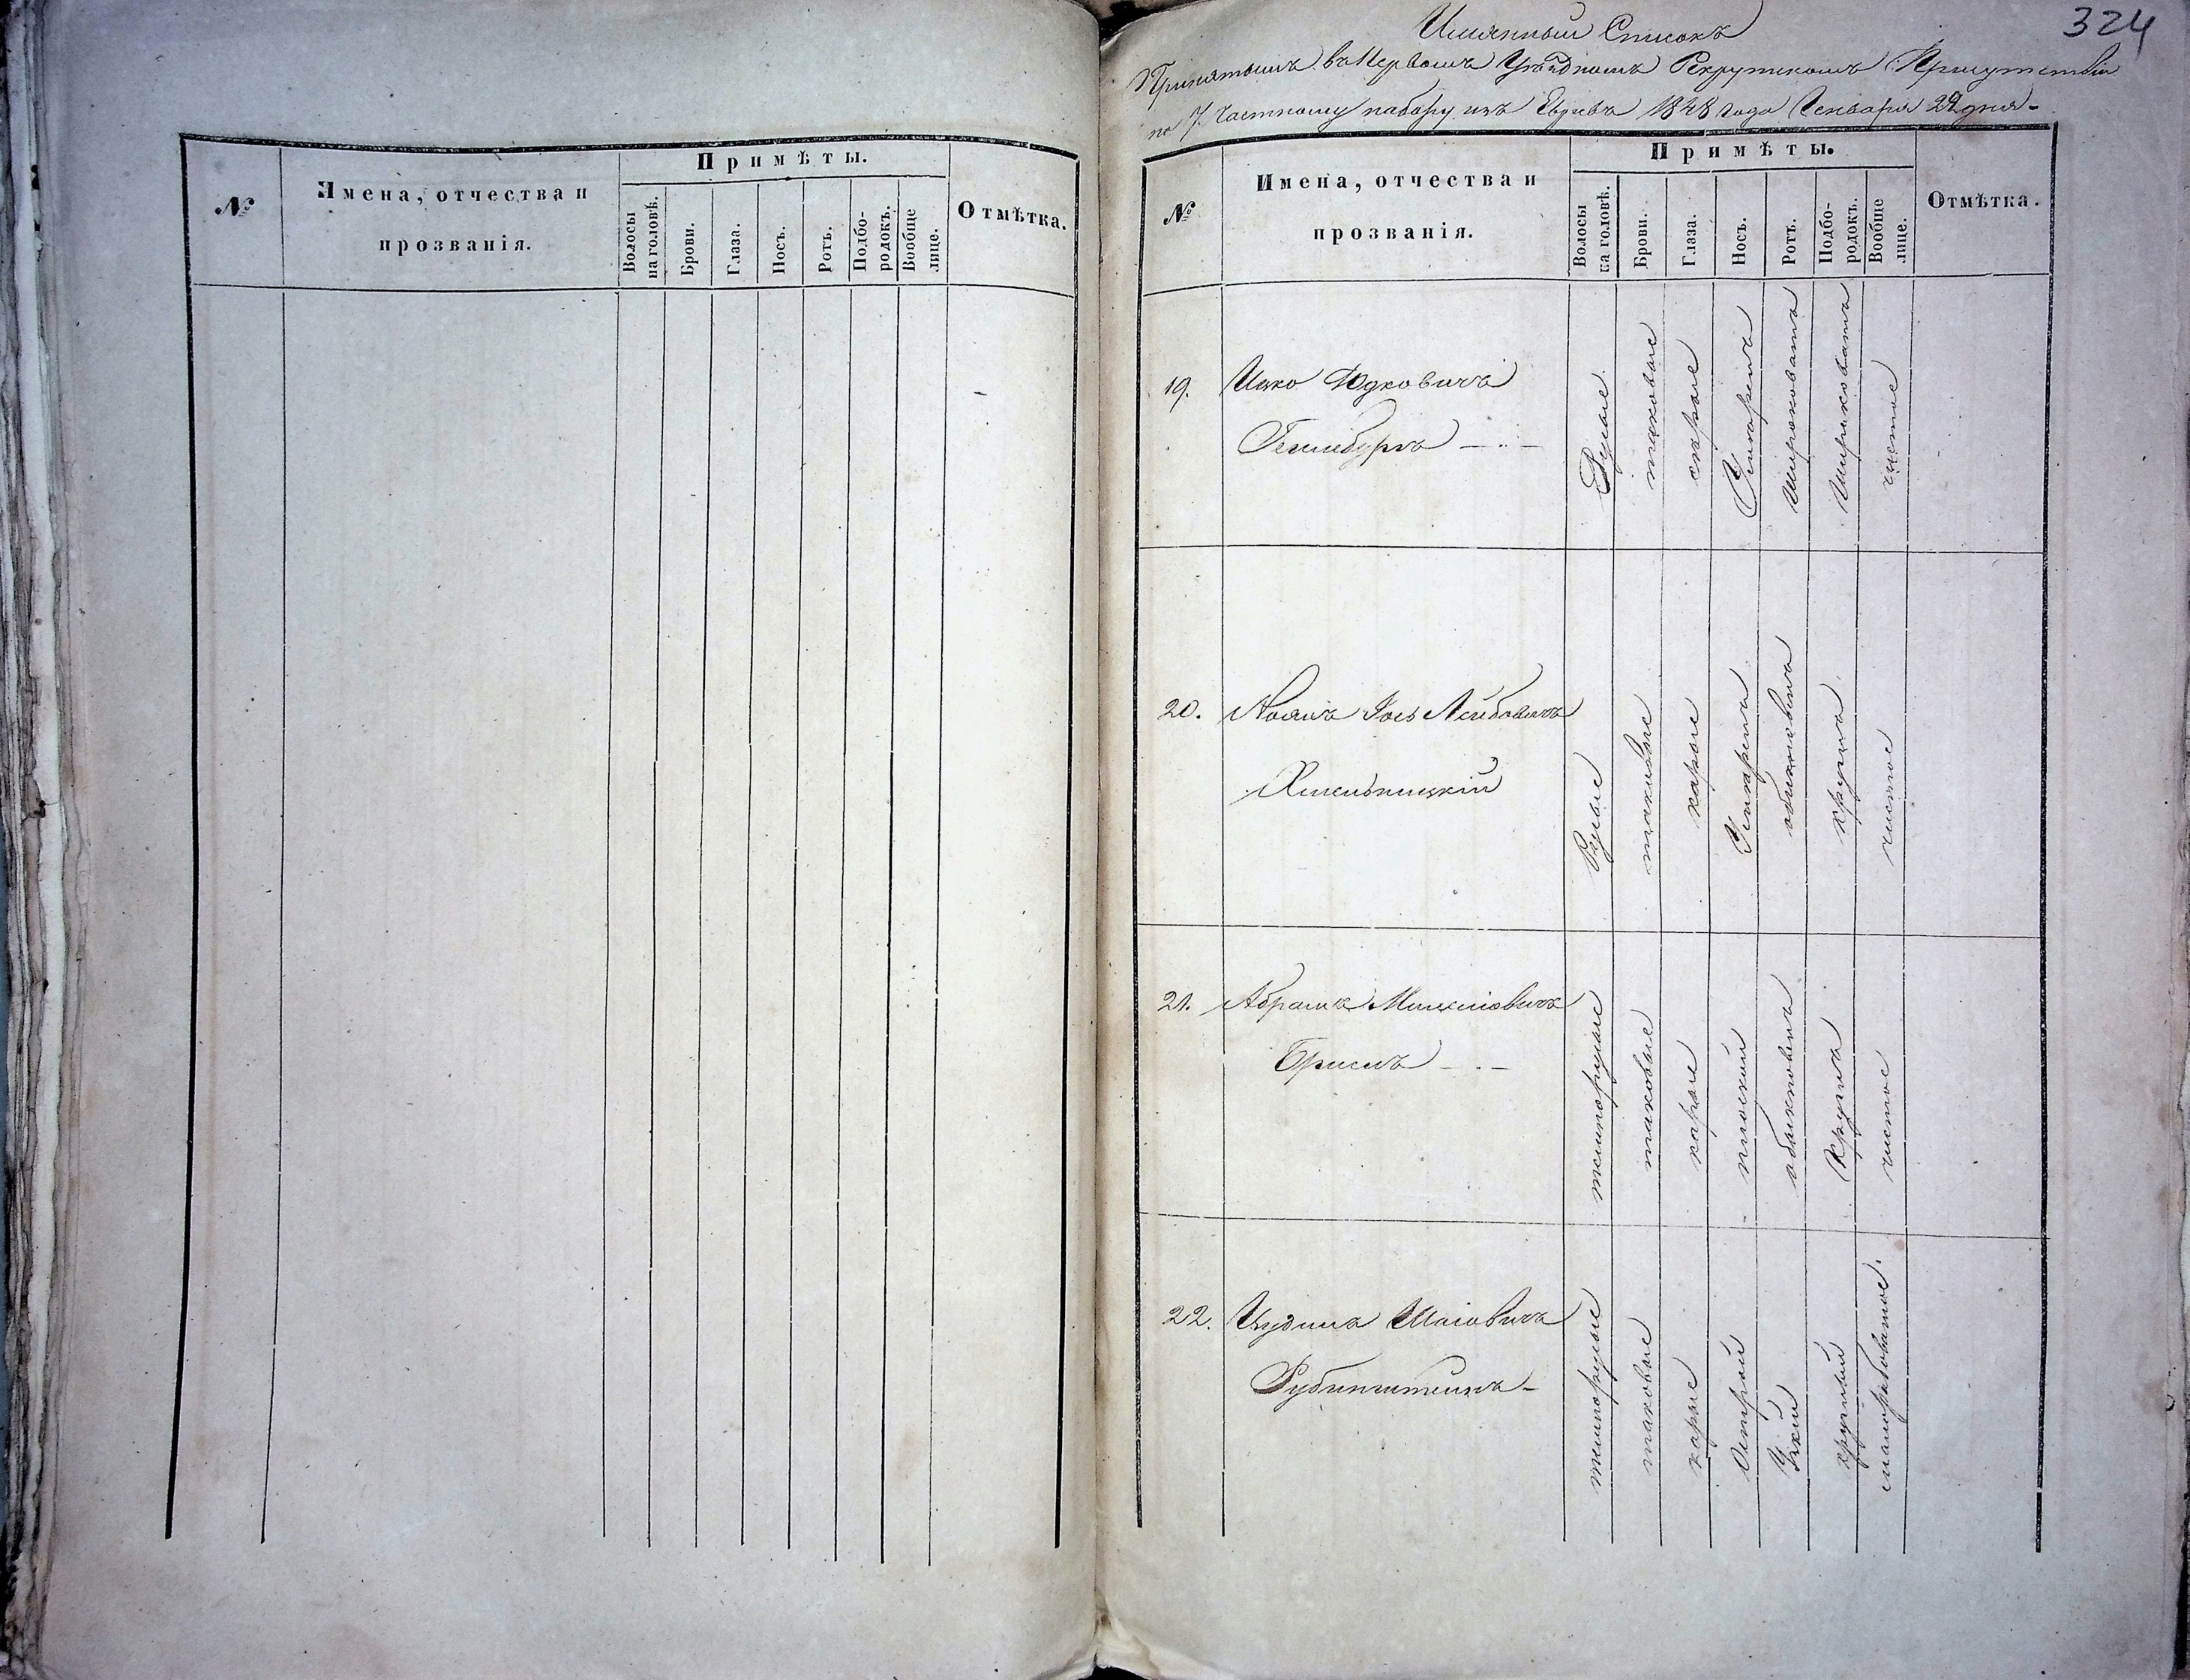 №
Имена, отчества и
прозванія.
Примѣты.
Волосы
на головѣ.
Брови.
Глаза.
Носъ.
Ротъ.
Подбо-
родокъ.
Вообще
лице.
Отмѣтка.
324
Имянный Списокъ
Принятымъ въ Первомъ Уѣздномъ Рекрутскомъ Присутствіи
по 7 частному набору изъ Евреевъ 1848 года Генваря 22 дня-
№
Имена, отчества и
прозванія.
Примѣты.
Волосы
на головѣ.
Брови.
Глаза.
Носъ.
Ротъ.
Подбо-
родокъ.
Вообще
лице.
Отмѣтка.
19.
Ицко Юдковичъ
Гешбургъ
Русые
таковые
сѣрые
Умѣренъ
Широковатъ
Широковатъ
чистое
20.
Іось Лейбовичъ
Хмельницкій
Русые
таковые
карые
Умѣренъ
обыкновенъ
круглъ
чистое
21.
Абрамъ Мошковичъ
темнорусые
таковые
карые
плоскій
обыкновенъ
Круглъ
чистое
22.
Шаіовичъ
Рубинштейнъ-
темнорусые
таковые
карые
Острый
Узкій
круглый
малорябоватое.